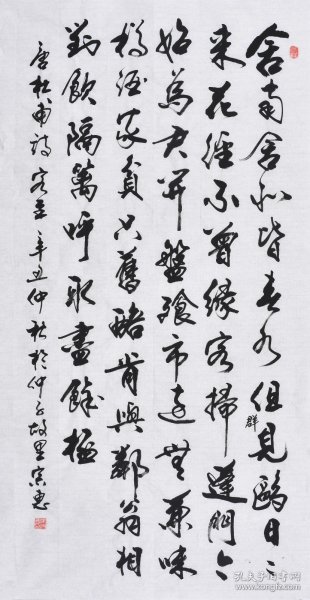 舍南舍北皆春水但見群鷗日〻
來花經不曾緣客掃蓬門今
始為君開盤飧市遠無兼味
樽酒家貧只舊醅肯與鄰翁相
對飲隔籬呼取盡餘杯
唐杜甫詩客至辛丑仲秋於仲子故里
孔夫子旧书网